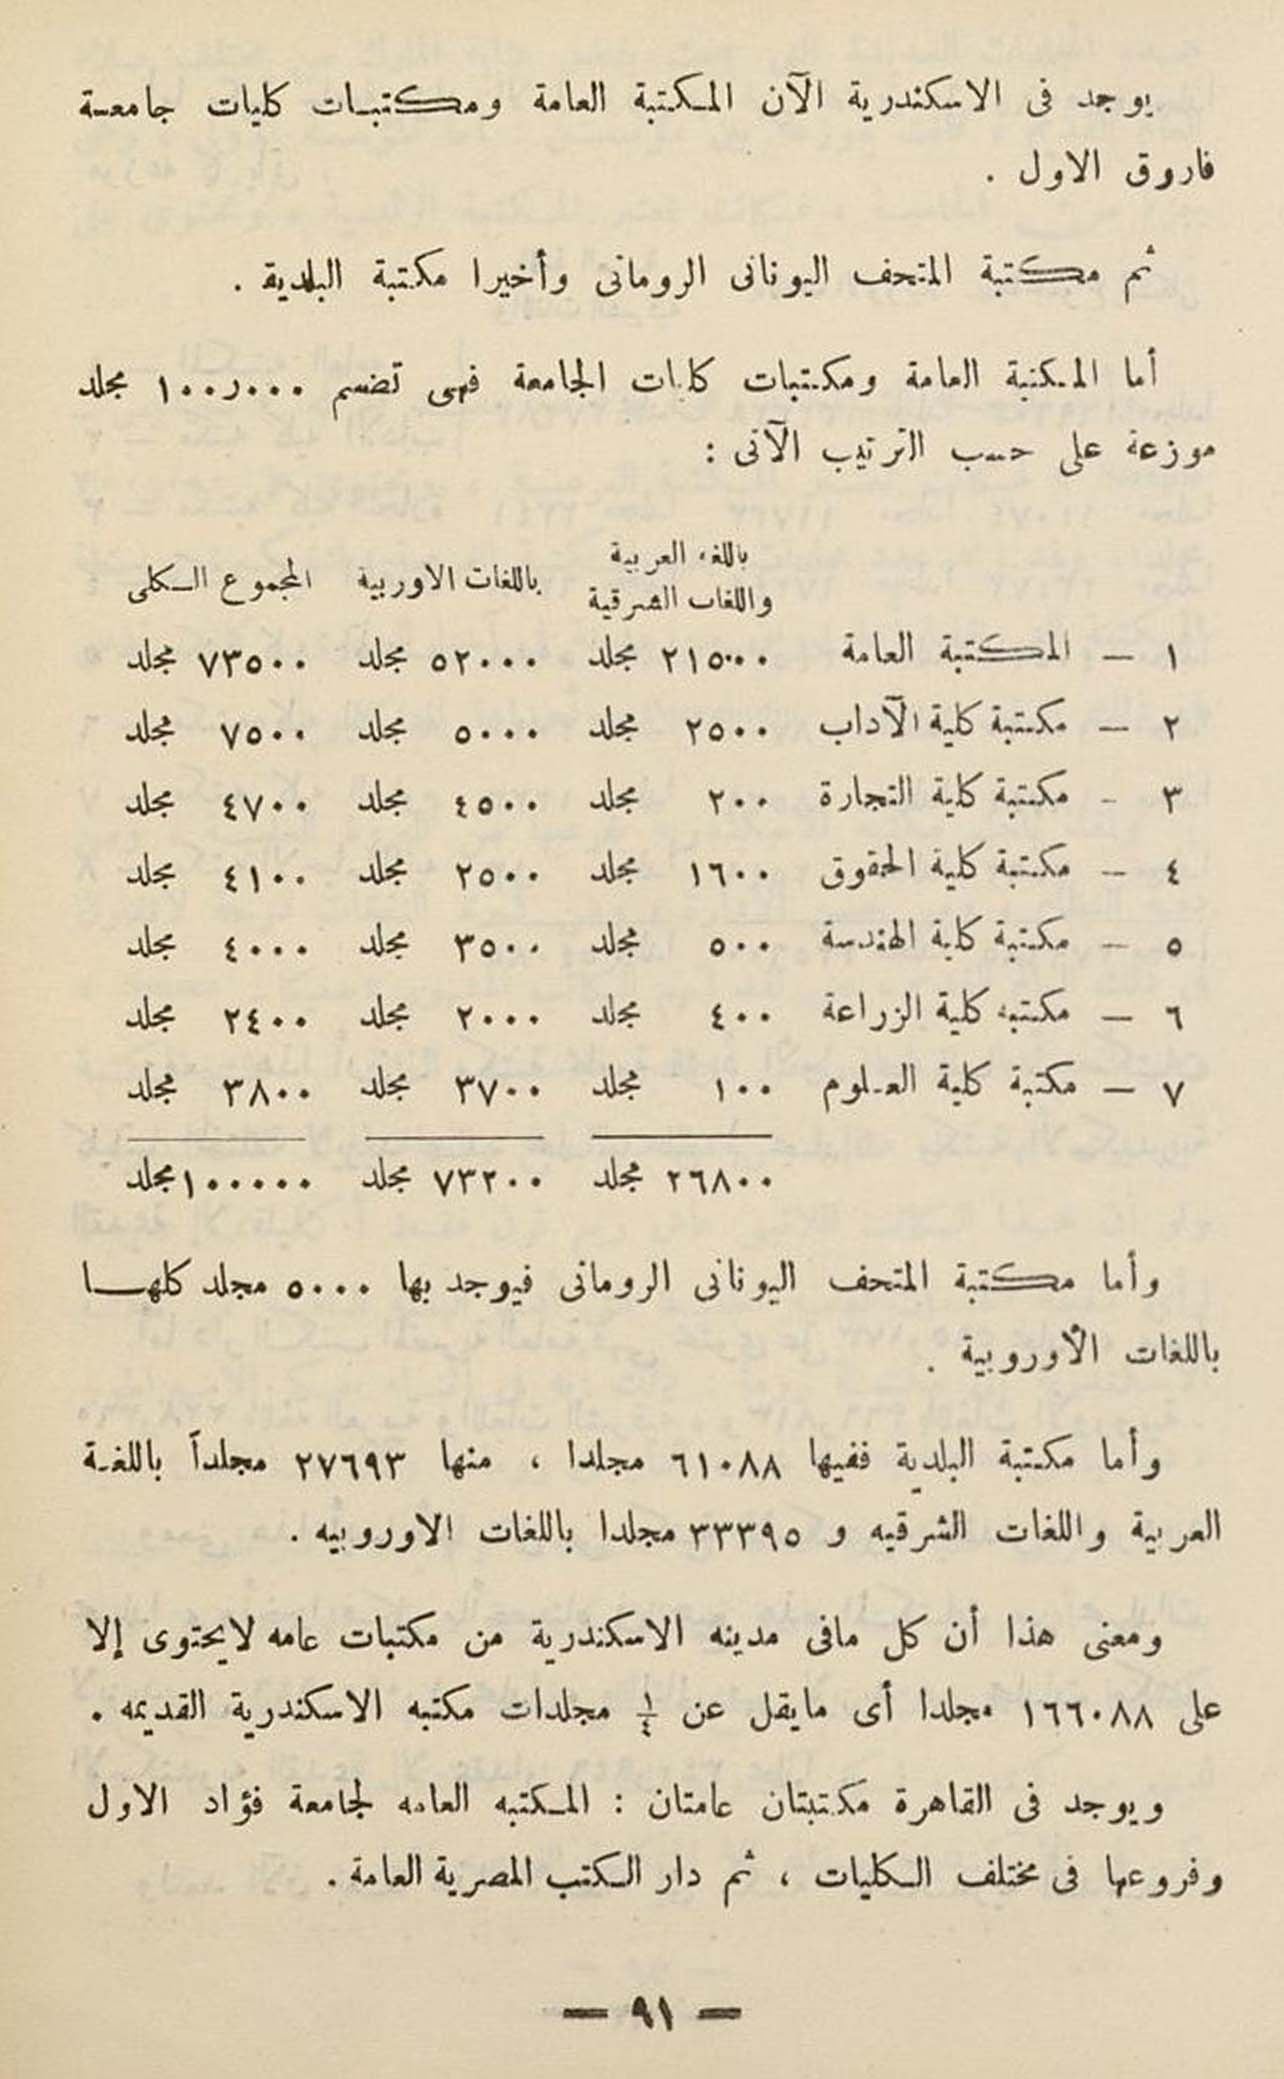 يوجد فى الاسكندرية الآن المكتبة العامة ومكتبات كليات جامعة
فاروق الاول .
ثم مكتبة المتحف اليونانى الرومانى وأخيرا مكتبة البلدية .
أما المكتبة العامة ومكتبات كليات الجامعة فهى تضم ١٠٠ر٠٠٠ مجلد
موزعة على حسب الترتيب الآتى :
باللغة العربية
واللغات الشرقية باللغات الاوربية المجموع الكلى
١ — المكتبة العامة ٢١٥٠٠ مجلد ٥٢٠٠٠ مجلد ٧٣٥٠٠ مجلد
٢ — مكتبة كلية الآداب ٢٥٠٠ مجلد ٥٠٠٠ مجلد ٧٥٠٠ مجلد
٣ - مكتبة كلية التجارة ٢٠٠ مجلد ٤٥٠٠ مجلد ٤٧٠٠ مجلد
٤ — مكتبة كلية الحقوق ١٦٠٠ مجلد ٢٥٠٠ مجلد ٤١٠٠ مجلد
٥ — مكتبة كلية الهندسة ٥٠٠ مجلد ٣٥٠٠ مجلد ٤٠٠٠ مجلد
٦ — مكتبه كلية الزراعة ٤٠٠ مجلد ٢٠٠٠ مجلد ٢٤٠٠ مجلد
٧ — مكتبة كلية العلوم ١٠٠ مجلد ٣٧٠٠ مجلد ٣٨٠٠ مجلد
٢٦٨٠٠ مجلد ٧٣٢٠٠ مجلد ١٠٠٠٠٠ مجلد
وأما مكتبة المتحف اليونانى الرومانى فيوجد بها ٥٠٠٠ مجلد كلها
باللغات الأوروبية .
وأما مكتبة البلدية ففيها ٦١٠٨٨ مجلدا ، منها ٢٧٦٩٣ مجلداً باللغة
العربية واللغات الشرقيه و ٣٣٣٩٥ مجلدا باللغات الاوروبيه .
ومعنى هذا أن كل مافى مدينه الاسكندرية من مكتبات عامه لايحتوى إلا
على ١٦٦٠٨٨ مجلدا أى مايقل عن ١/٤ مجلدات مكتبه الاسكندرية القديمه .
ويوجد فى القاهرة مكتبتان عامتان : المكتبه العامه لجامعة فؤاد الاول
وفروعها فى مختلف الكليات ، ثم دار الكتب المصرية العامة .
— ٩١ —